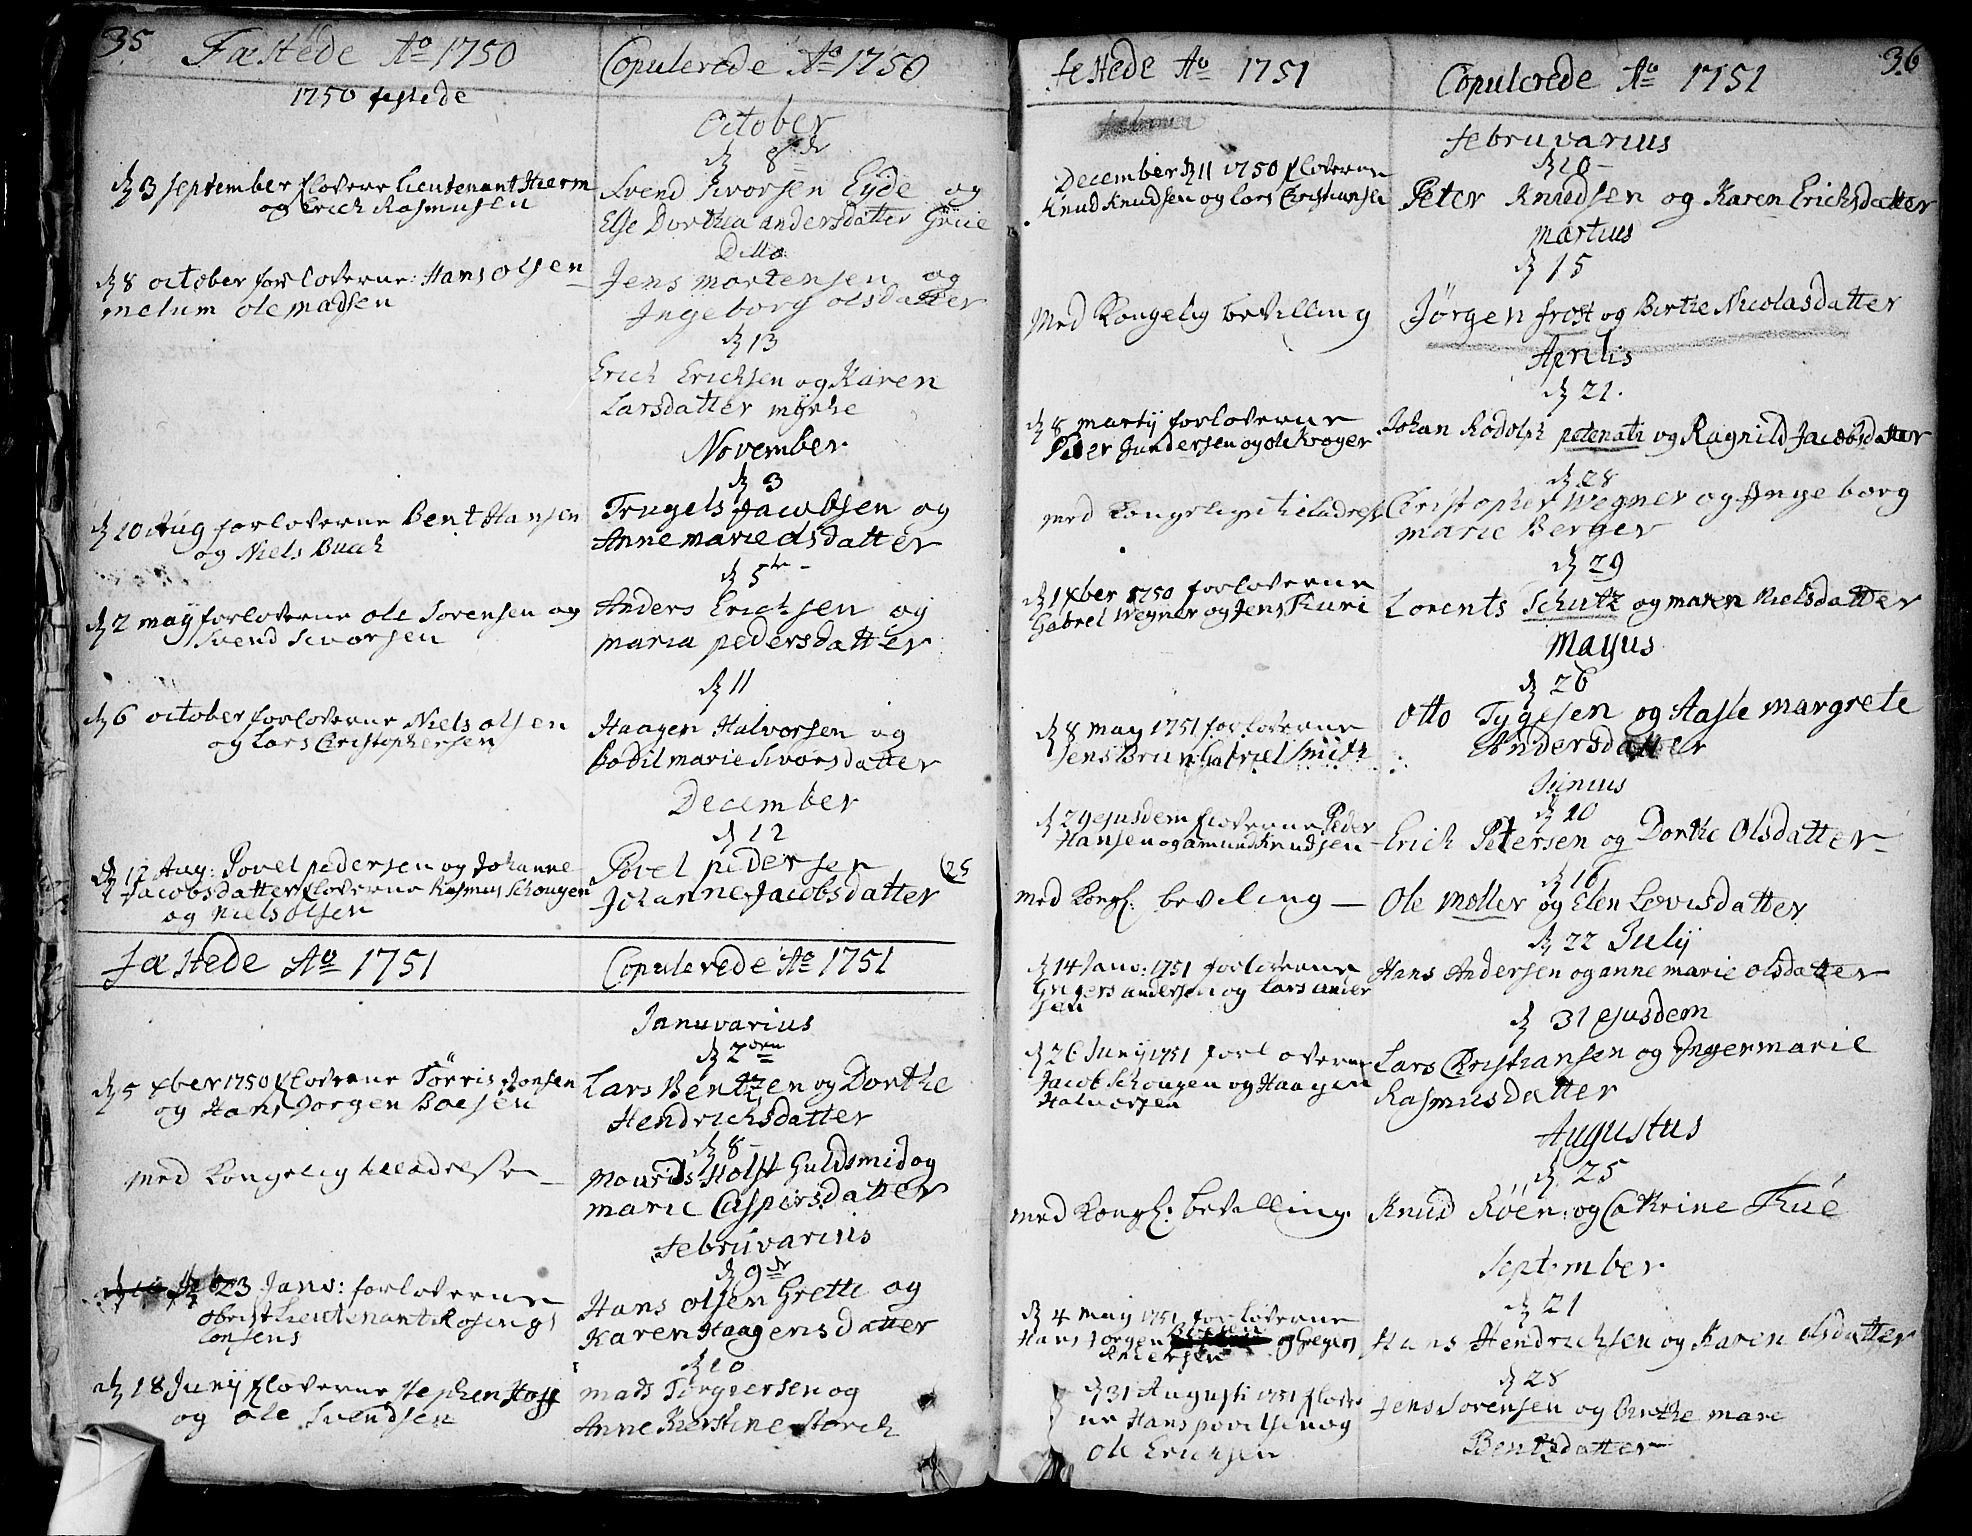 35
Fæstede Ao 1750
1750 festede
d 3 September floverne Lieutenant Hierm
og Erich Rasmusen
d 8 october forloverne: Hans olsen
melum ole madsen
d 10 Aug forloverne Bent Hansen
og Niels Buch
d 2 may forloverne ole Sorensen og
Svend Sivorsen
d 6 october forloverne Niels olsen
og Lars Christophersen
d 12 Aug: Povel pedersen og Johanne
Jacobsdatter floverne Rasmus Schougen
og Niels olsen
Copulerede Ao 1750
October
d 8de
Svend Sivorsen Eyde og
Else Dorthea andersdatter Grüe
Ditto
Jens mortensen og
Ingeborg olsdatter
d 13
Erich Erichsen og Karen
Larsdatter myhre
November
d 3
Trugels Jacobsen og
Anne marie olsdatter
d 5te
Anders Erichsen og
maria pedersdatter
d 11
Haagen Halvorsen og
Bodil marie Sivorsdatter
December
d 12
Povel pedersen
Johanne Jacobsdatter
25
Fæstede Ao 1751
d 5 xber 1750 floverne Törris Jonsen
og Hans Jorgen Boesen
med Kongelig
d 23 Janv: forloverne
obrist Lieutenant Rosings
Consens
d 18 Junij floverne Stephen Hoff
og ole Svendsen
Copulerede Ao 1751
Januvarius
d 2den
Lars Bentzen og Dorthe
Hendrichsdatter
d 8
Mourids Holst Guldsmid og
marie Caspersdatter
Februvarius
d 9de
Hans olsen Grette og
Karen Haagensdatter
d 20
mads Torgversen og
Anne Kierstine Storch
36
festede Ao 1751
December d 11 1750 floverne
Knud Knudsen og Lars Christiansen
Med Kongelig bevilling
d 8 martij forloverne
Peder Gundersen og ole Kroger
med Kongelige
d 1 xber 1750 forloverne
Gabrel Wegner og Jens Thuri
d 8 may 1751 forloverne
Jens Brun Gabriel Smith
d 29 ejusdem floverne Peder
Hansen og amund Knudsen
med Kongl: beviling
d 14 Janv: 1751 forloverne
Gregers andersen og Lars ander
sen
d 26 Junij 1751 forloverne
Jacob Schougen og Haagen
Halvorsen
med Kongl: bevilling
d 4 may 1751 forloverne
Hans Jorgen Boesen og Gregers
Andersen
d 31 Augusti 1751 flover
ne Hans povelsen og
ole Erichsen
Copulerede Ao 1751
Februvarius
d 10
Peter Knudsen og Karen Erichsdatter
martius
d 15
Jørgen frost og Birthe Nicolasdatter
Aprilis
d 21.
Johan Rodolph petenati og Ragnild Jacobsdatter
d 28
Christopher Wegner og Ingeborg
marie Berger
d 29
Lorents Schutz og maren Nielsdatter
Mayus
d 26
Otto Tygesen og Aasle margrete
Andersdatter
Junius
d 10
Erich Petersen og Dorthe Olsdatter
d 16
Ole Møller og Elen Lovisdatter
d 22 Julij
Hans Andersen og anne marie olsdatter
d 31 ejusdem
Lars Christiansen og Inger marie
Rasmusdatter
Augustus
d 25
Knud Röen: og Cathrine Thue
September
d 21
Hans Hendrichsen og Karen olsdatter
d 28
Jens Sorensen og Birthe mare
Bentsdatter